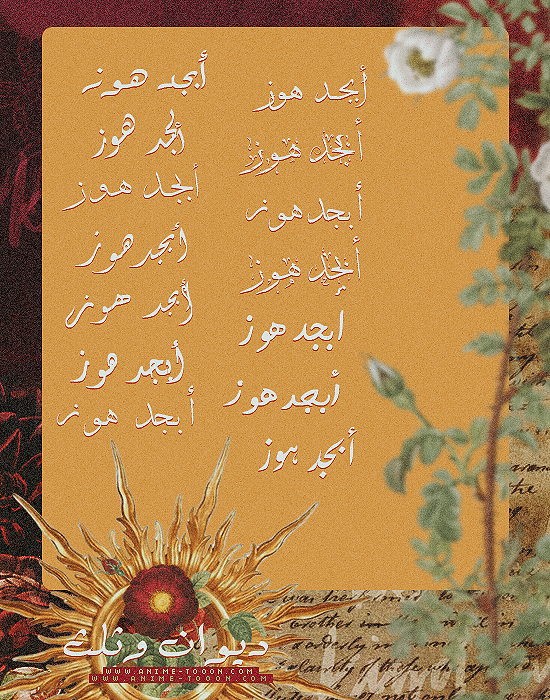 أبجد هوز
أبجد هوز
أبجد هوز
أبجد هوز
أبجد هوز
أبجد هوز
ابجد هوز
أبجد هوز
أبجد هوز
أبجد هوز
أبجد هوز
أبجد هوز
أبجد هوز
أبجد هوز
ديوان وثلث
WWW.ANIME-TOOON.COM